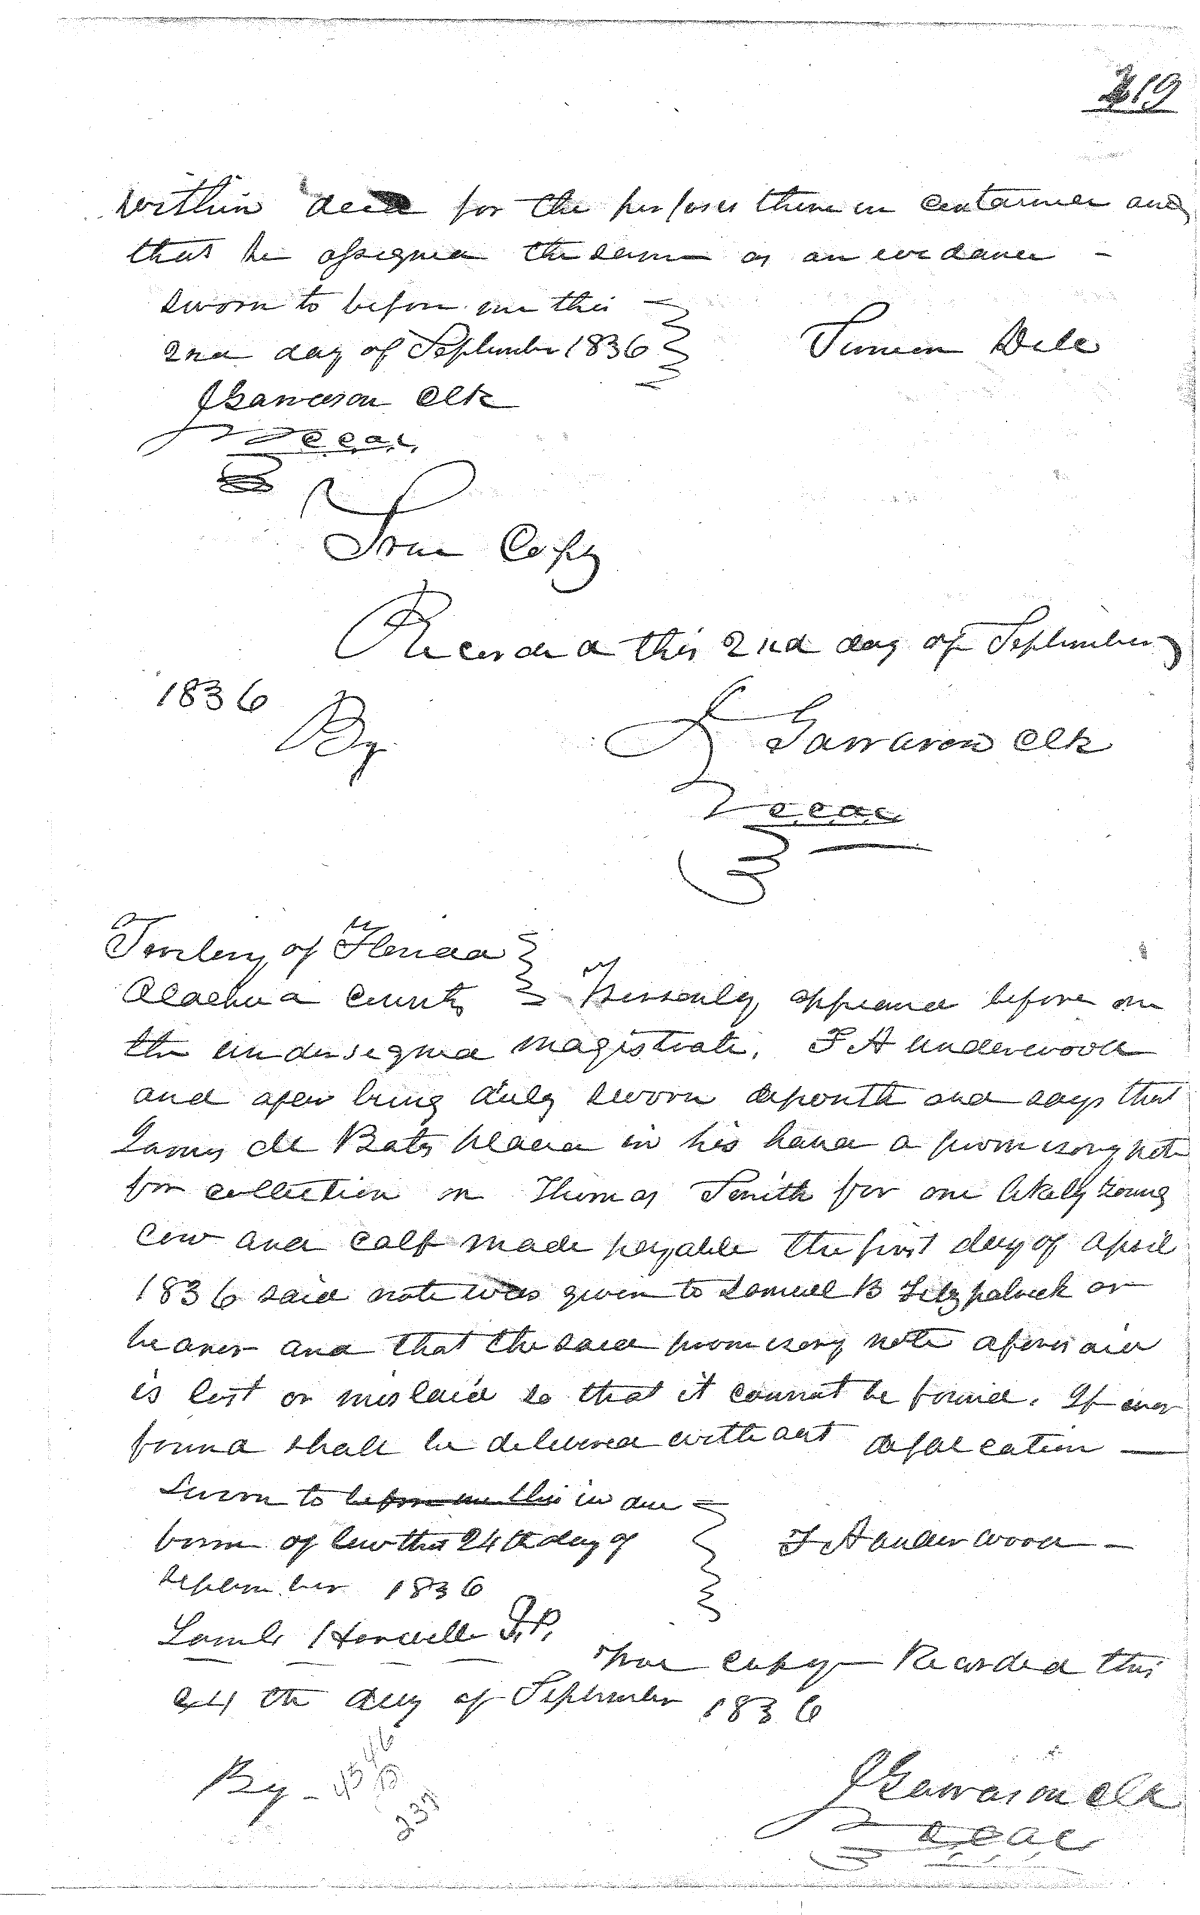 219
within deed for the purposes therein contained and
that he assigned the same as an evidance -
Sworn to before me this
2nd day of September 1836
Simeon Dell
J Garrason Clk
C.C.A.C.
True Copy
Recorded this 2nd day of September
1836
By
J Garrason Clk
C.C.A.C.
Teritory of Florida
Alachua County Personly appeared before me
the undersigned magistrate. F A Underwood
and after being duly sworn deposeth and says that
James M Bates placed in his hand a promisory note
for collection on Thomas Smith for one likely young
Cow and calf made payable the first day of April
1836 said note was given to Samuel B Fitzpatrick or
bearer and that the said promisory note aforesaid
is lost or mislaid so that it cannot be found. If ever
found shall be delivered without defalcation —
Sworn to before me this in due
form of law this 24th day of
September 1836
F A Underwood —
Howell J.P.
True copy Recorded this
24th day of September 1836
By -
J Garrason Clk
C.C.A.C.